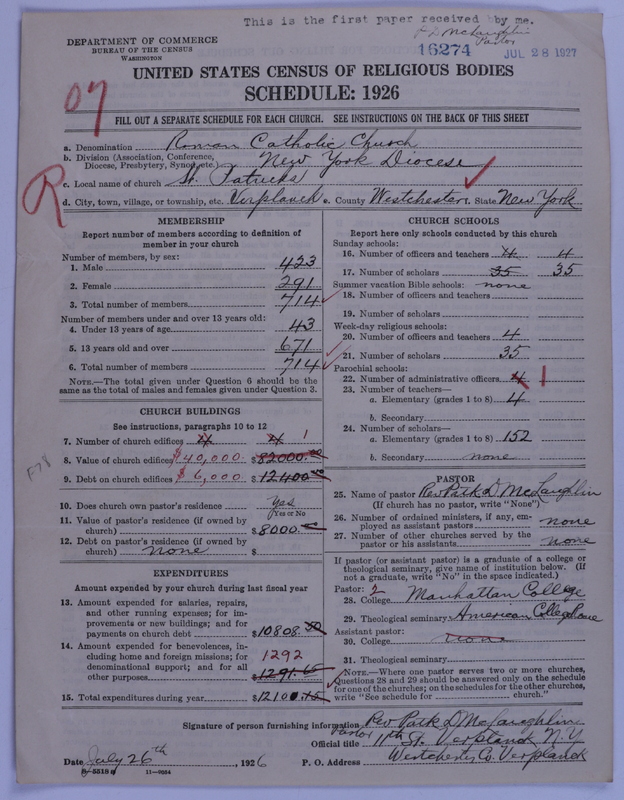 This is the first paper received by me.
P D McLaughlin
Pastor
DEPARTMENT OF COMMERCE
BUREAU OF THE CENSUS
WASHINGTON
16274
JUL 28 1927
UNITED STATES CENSUS OF RELIGIOUS BODIES
SCHEDULE: 1926
07
FILL OUT A SEPARATE SCHEDULE FOR EACH CHURCH. SEE INSTRUCTIONS ON THE BACK OF THIS SHEET
R
a. Denomination Roman Catholic Church
b. Division (Association, Conference, Diocese, Presbytery, Synod, etc.) New York Diocese
c. Local name of church St. Patricks
d. City, town, village, or township, etc. Verplanck e. County Westchester f. State New York
MEMBERSHIP
Report number of members according to definition of
member in your church
Number of members, by sex:
1. Male 423
2. Female 291
3. Total number of members 714
Number of members under and over 13 years old:
4. Under 13 years of age 43
5. 13 years old and over 671
6. Total number of members 714
NOTE.—The total given under Question 6 should be the
same as the total of males and females given under Question 3.
CHURCH BUILDINGS
See instructions, paragraphs 10 to 12
7. Number of church edifices 4 4 1
8. Value of church edifices $40,000. $82000.00
9. Debt on church edifices $6,000 $12400.00
F78
10. Does church own pastor's residence Yes
(Yes or No)
11. Value of pastor's residence (if owned by
church) $8000.
12. Debt on pastor's residence (if owned by
church) none $
EXPENDITURES
Amount expended by your church during last fiscal year
13. Amount expended for salaries, repairs,
and other running expenses; for im-
provements or new buildings; and for
payments on church debt $10808.50
14. Amount expended for benevolences, in-
cluding home and foreign missions; for
denominational support; and for all
other purposes 1292 $1291.65
15. Total expenditures during year $12100.15
CHURCH SCHOOLS
Report here only schools conducted by this church
Sunday schools:
16. Number of officers and teachers 4 4
17. Number of scholars 35 35
Summer vacation Bible schools: none
18. Number of officers and teachers
19. Number of scholars
Week-day religious schools:
20. Number of officers and teachers 4
21. Number of scholars 35
Parochial schools:
22. Number of administrative officers 4 1
23. Number of teachers—
a. Elementary (grades 1 to 8) 4
b. Secondary
24. Number of scholars—
a. Elementary (grades 1 to 8) 152
b. Secondary none
PASTOR
25. Name of pastor Rev Patk D McLaughlin
(If church has no pastor, write "None")
26. Number of ordained ministers, if any, em-
ployed as assistant pastors none
27. Number of other churches served by the
pastor or his assistants none
If pastor (or assistant pastor) is a graduate of a college or
theological seminary, give name of institution below. (If
not a graduate, write "No" in the space indicated.)
Pastor: 2
28. College Manhattan College
29. Theological seminary American College Rome
Assistant pastor:
30. College none
31. Theological seminary
NOTE.—Where one pastor serves two or more churches,
Questions 28 and 29 should be answered only on the schedule
for one of the churches; on the schedules for the other churches,
write "See schedule for church."
Signature of person furnishing information Rev Patk D McLaughlin
Official title Pastor 11th St. Verplanck N.Y
Date July 26th, 1926 P. O. Address Westchester Co. Verplanck
8-5518a 11-9034